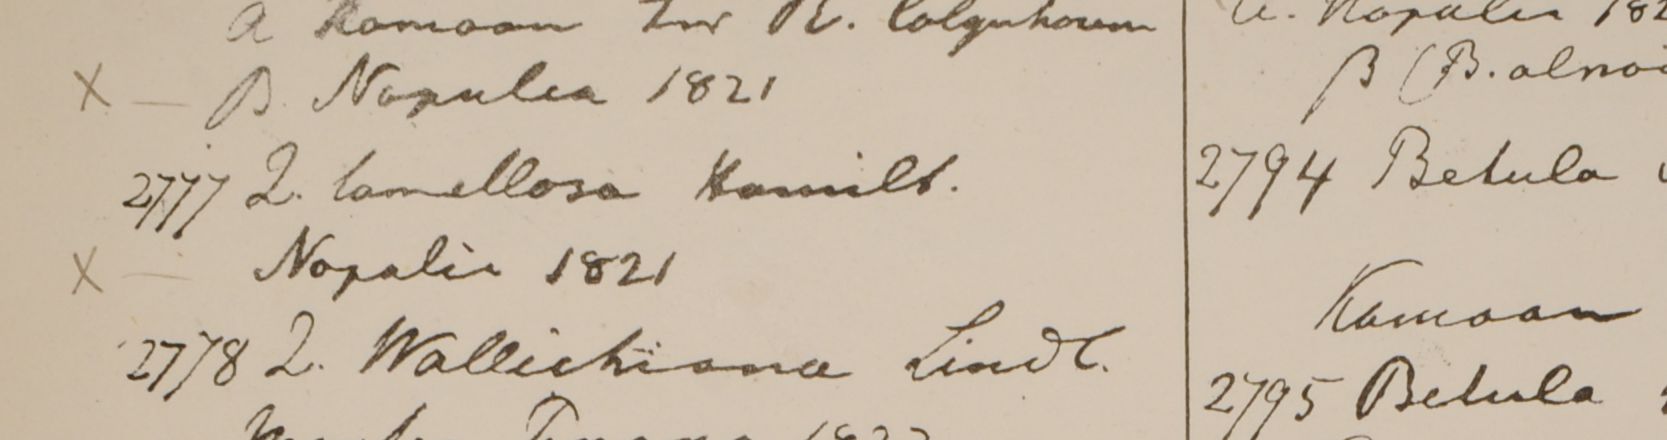 a Kamoon R. Colquhoun
X — β Napulea 1821
2777 Q. lamellosa Hamilt.
X — Napalia 1821
2778 Q. Wallichiana Lindl.
1822
a. Napalia 182
β (B. alnoi
2794 Betula
Kamoon
2795 Betula